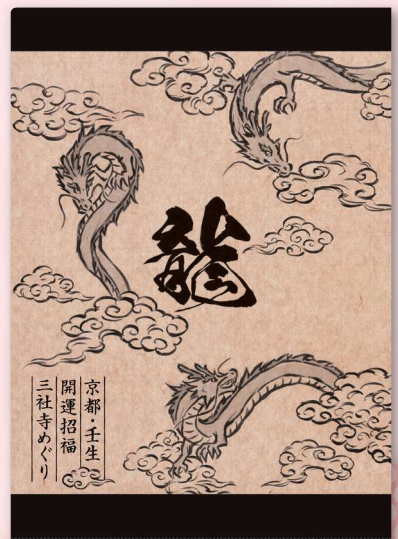 龍
京都・壬生
開運招福
三社寺めぐり